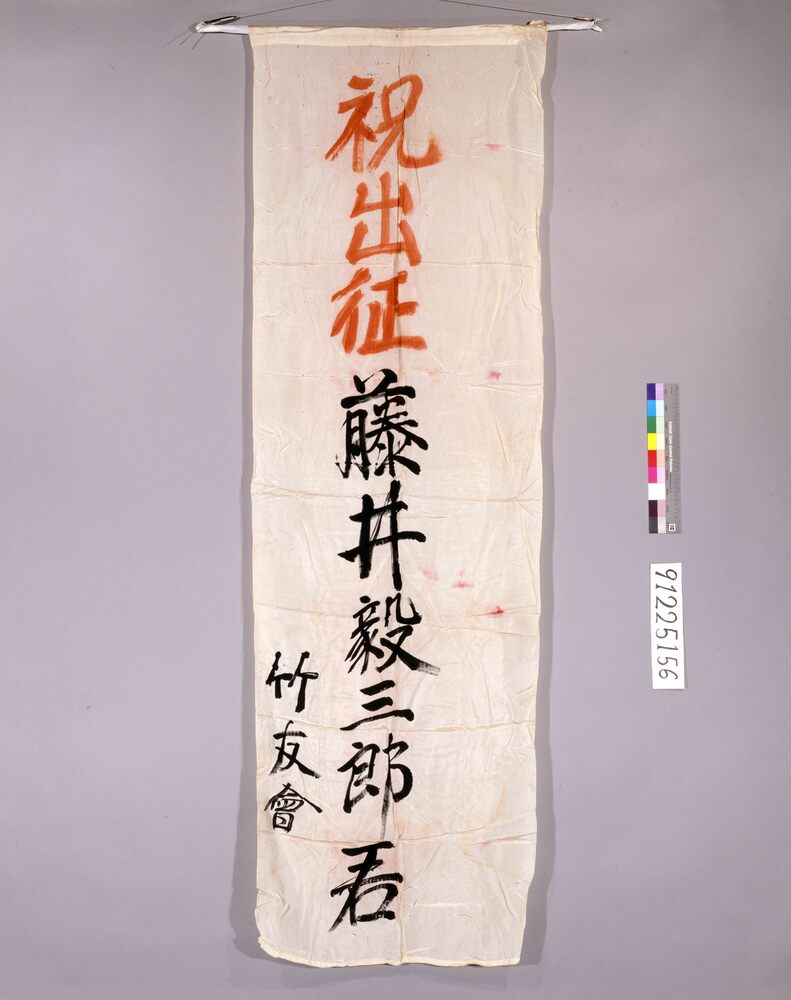 祝出征藤井毅三郎君
竹友會
91225156